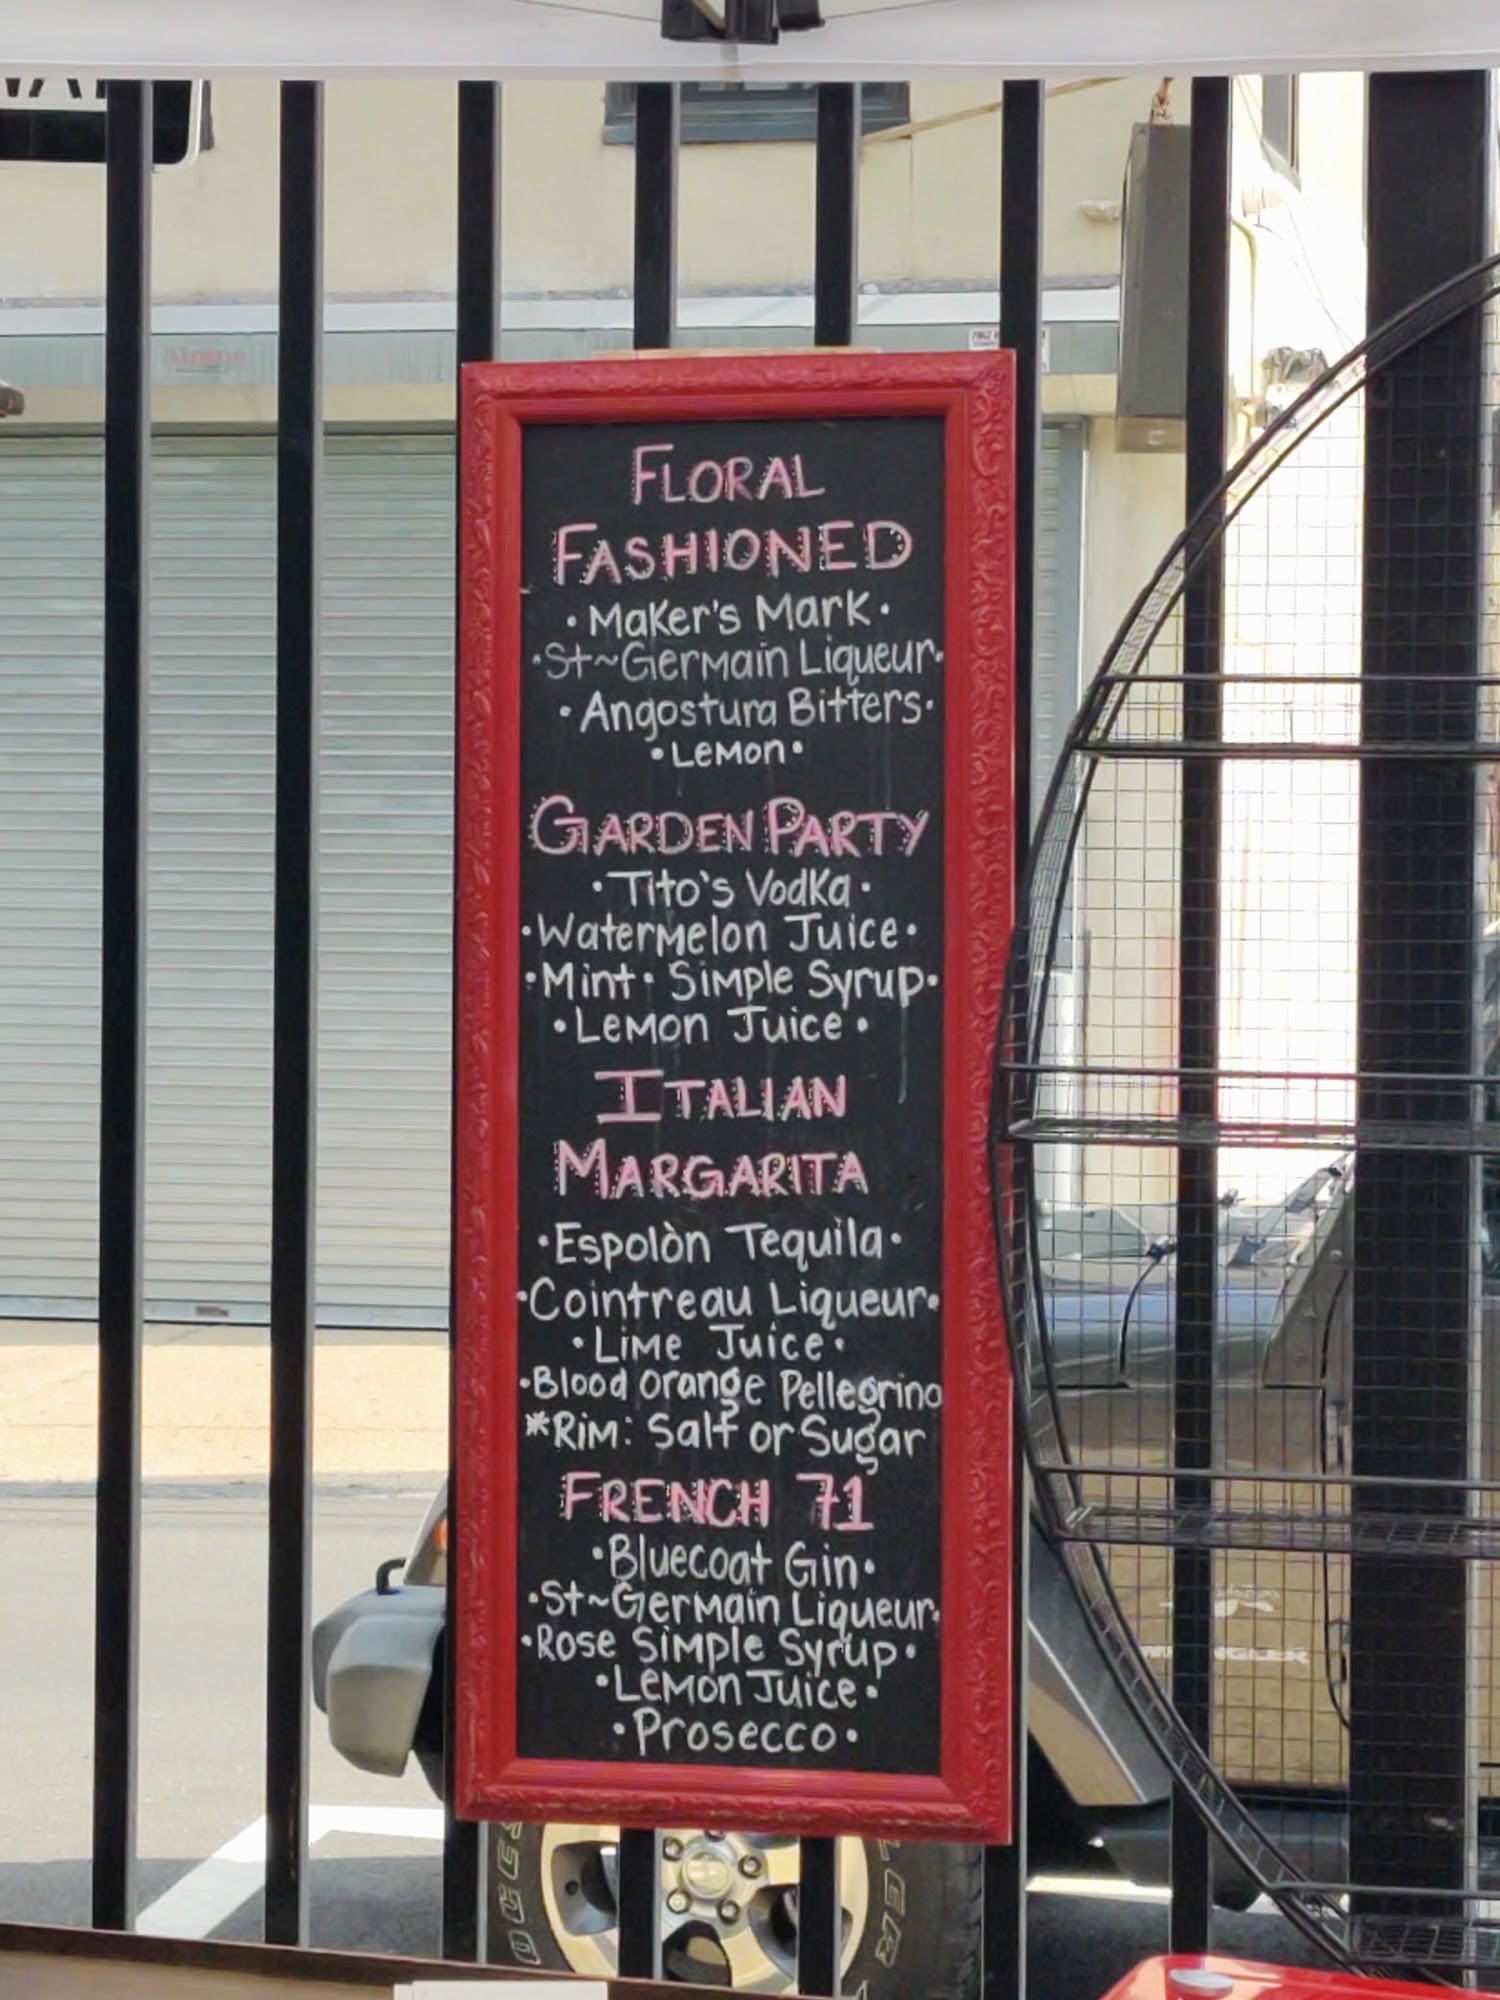 FLORAL
FASHIONED
• Maker's Mark •
• St~Germain Liqueur •
• Angostura Bitters •
• Lemon •
GARDEN PARTY
• Tito's Vodka •
• Watermelon Juice •
• Mint • Simple Syrup •
• Lemon Juice •
ITALIAN
MARGARITA
• Espolòn Tequila •
• Cointreau Liqueur •
• Lime Juice •
• Blood Orange Pellegrino
*Rim: Salt or Sugar
FRENCH 71
• Bluecoat Gin •
• St~Germain Liqueur •
• Rose Simple Syrup •
• Lemon Juice •
• Prosecco •